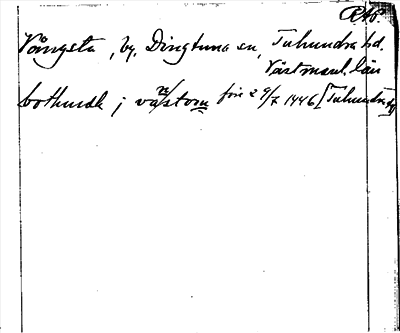 RAP
Vångsta, by, Dingtuna sn, Tuhundra hd.
Västmanl. län
bothusde j vastom före 29/7 1446 [Tuhundra